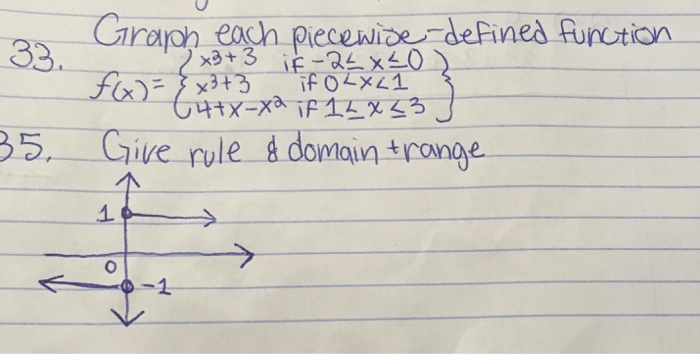 Graph each piecewise-defined function
33.
x³+3 if -2≤ x≤0
f(x)= { x³+3 if 0<x<1 }
4+x-x² if 1≤ x ≤3
35. Give rule & domain + range
1
0
-1